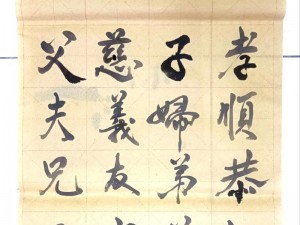 孝順恭
子婦弟
慈義友
父夫兄